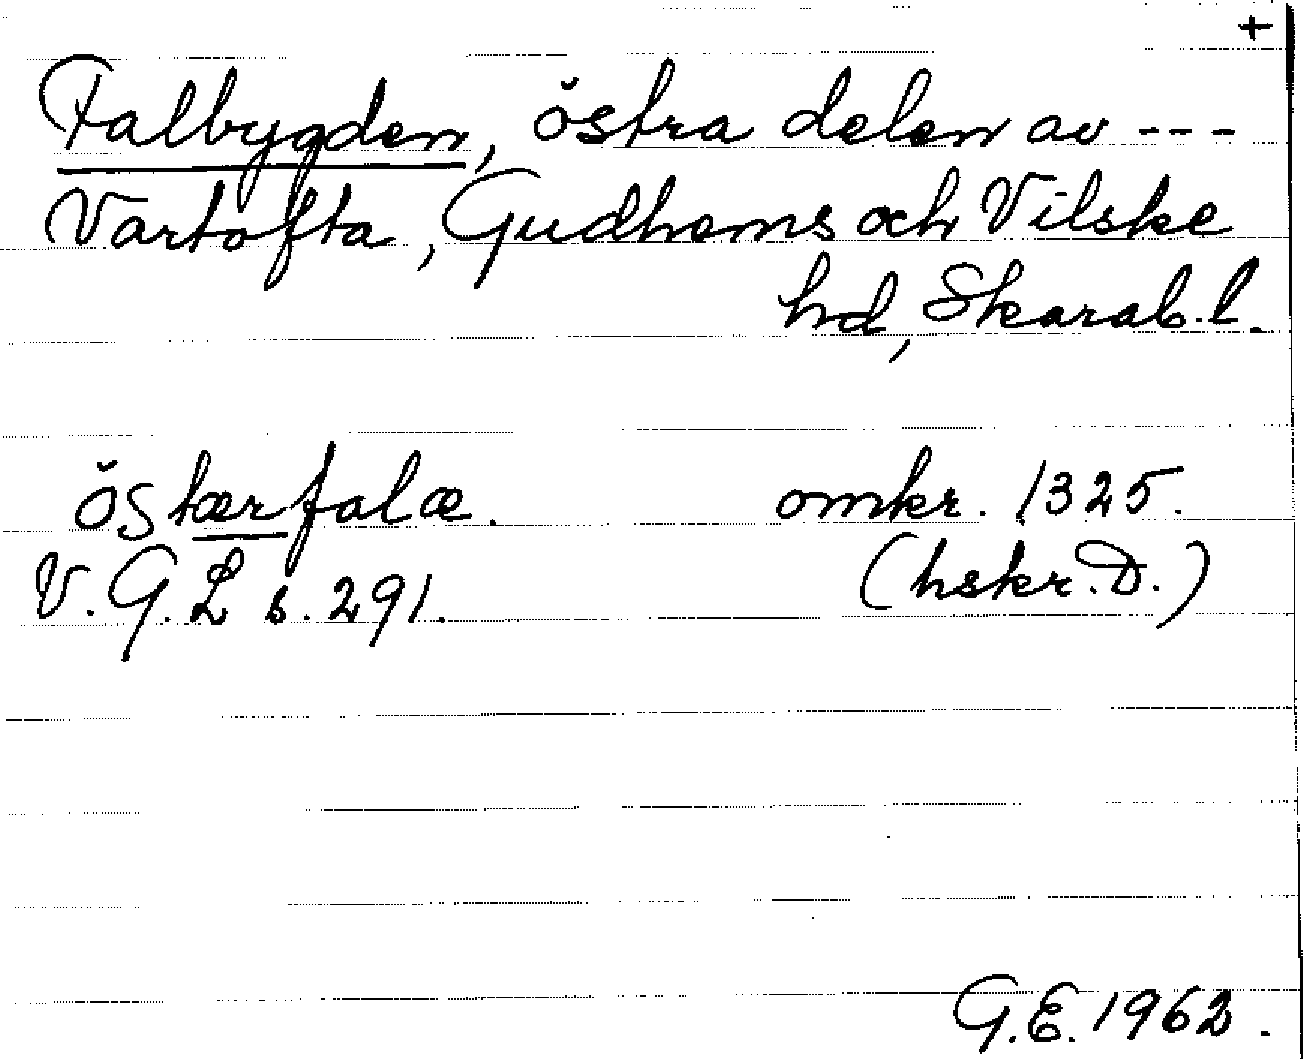 +
Falbygden, östra delen av ---
Vartofta, Gudhems och Vilske
hd, Skarab. l.
östærfalæ. omkr. 1325.
V. G. L s. 291. (hskr. D.)
G.E. 1962.